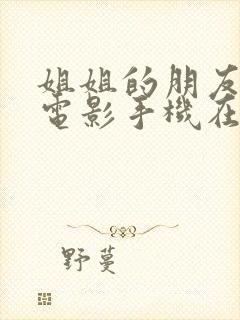 姐姐的朋友
電影手機在
野蔓